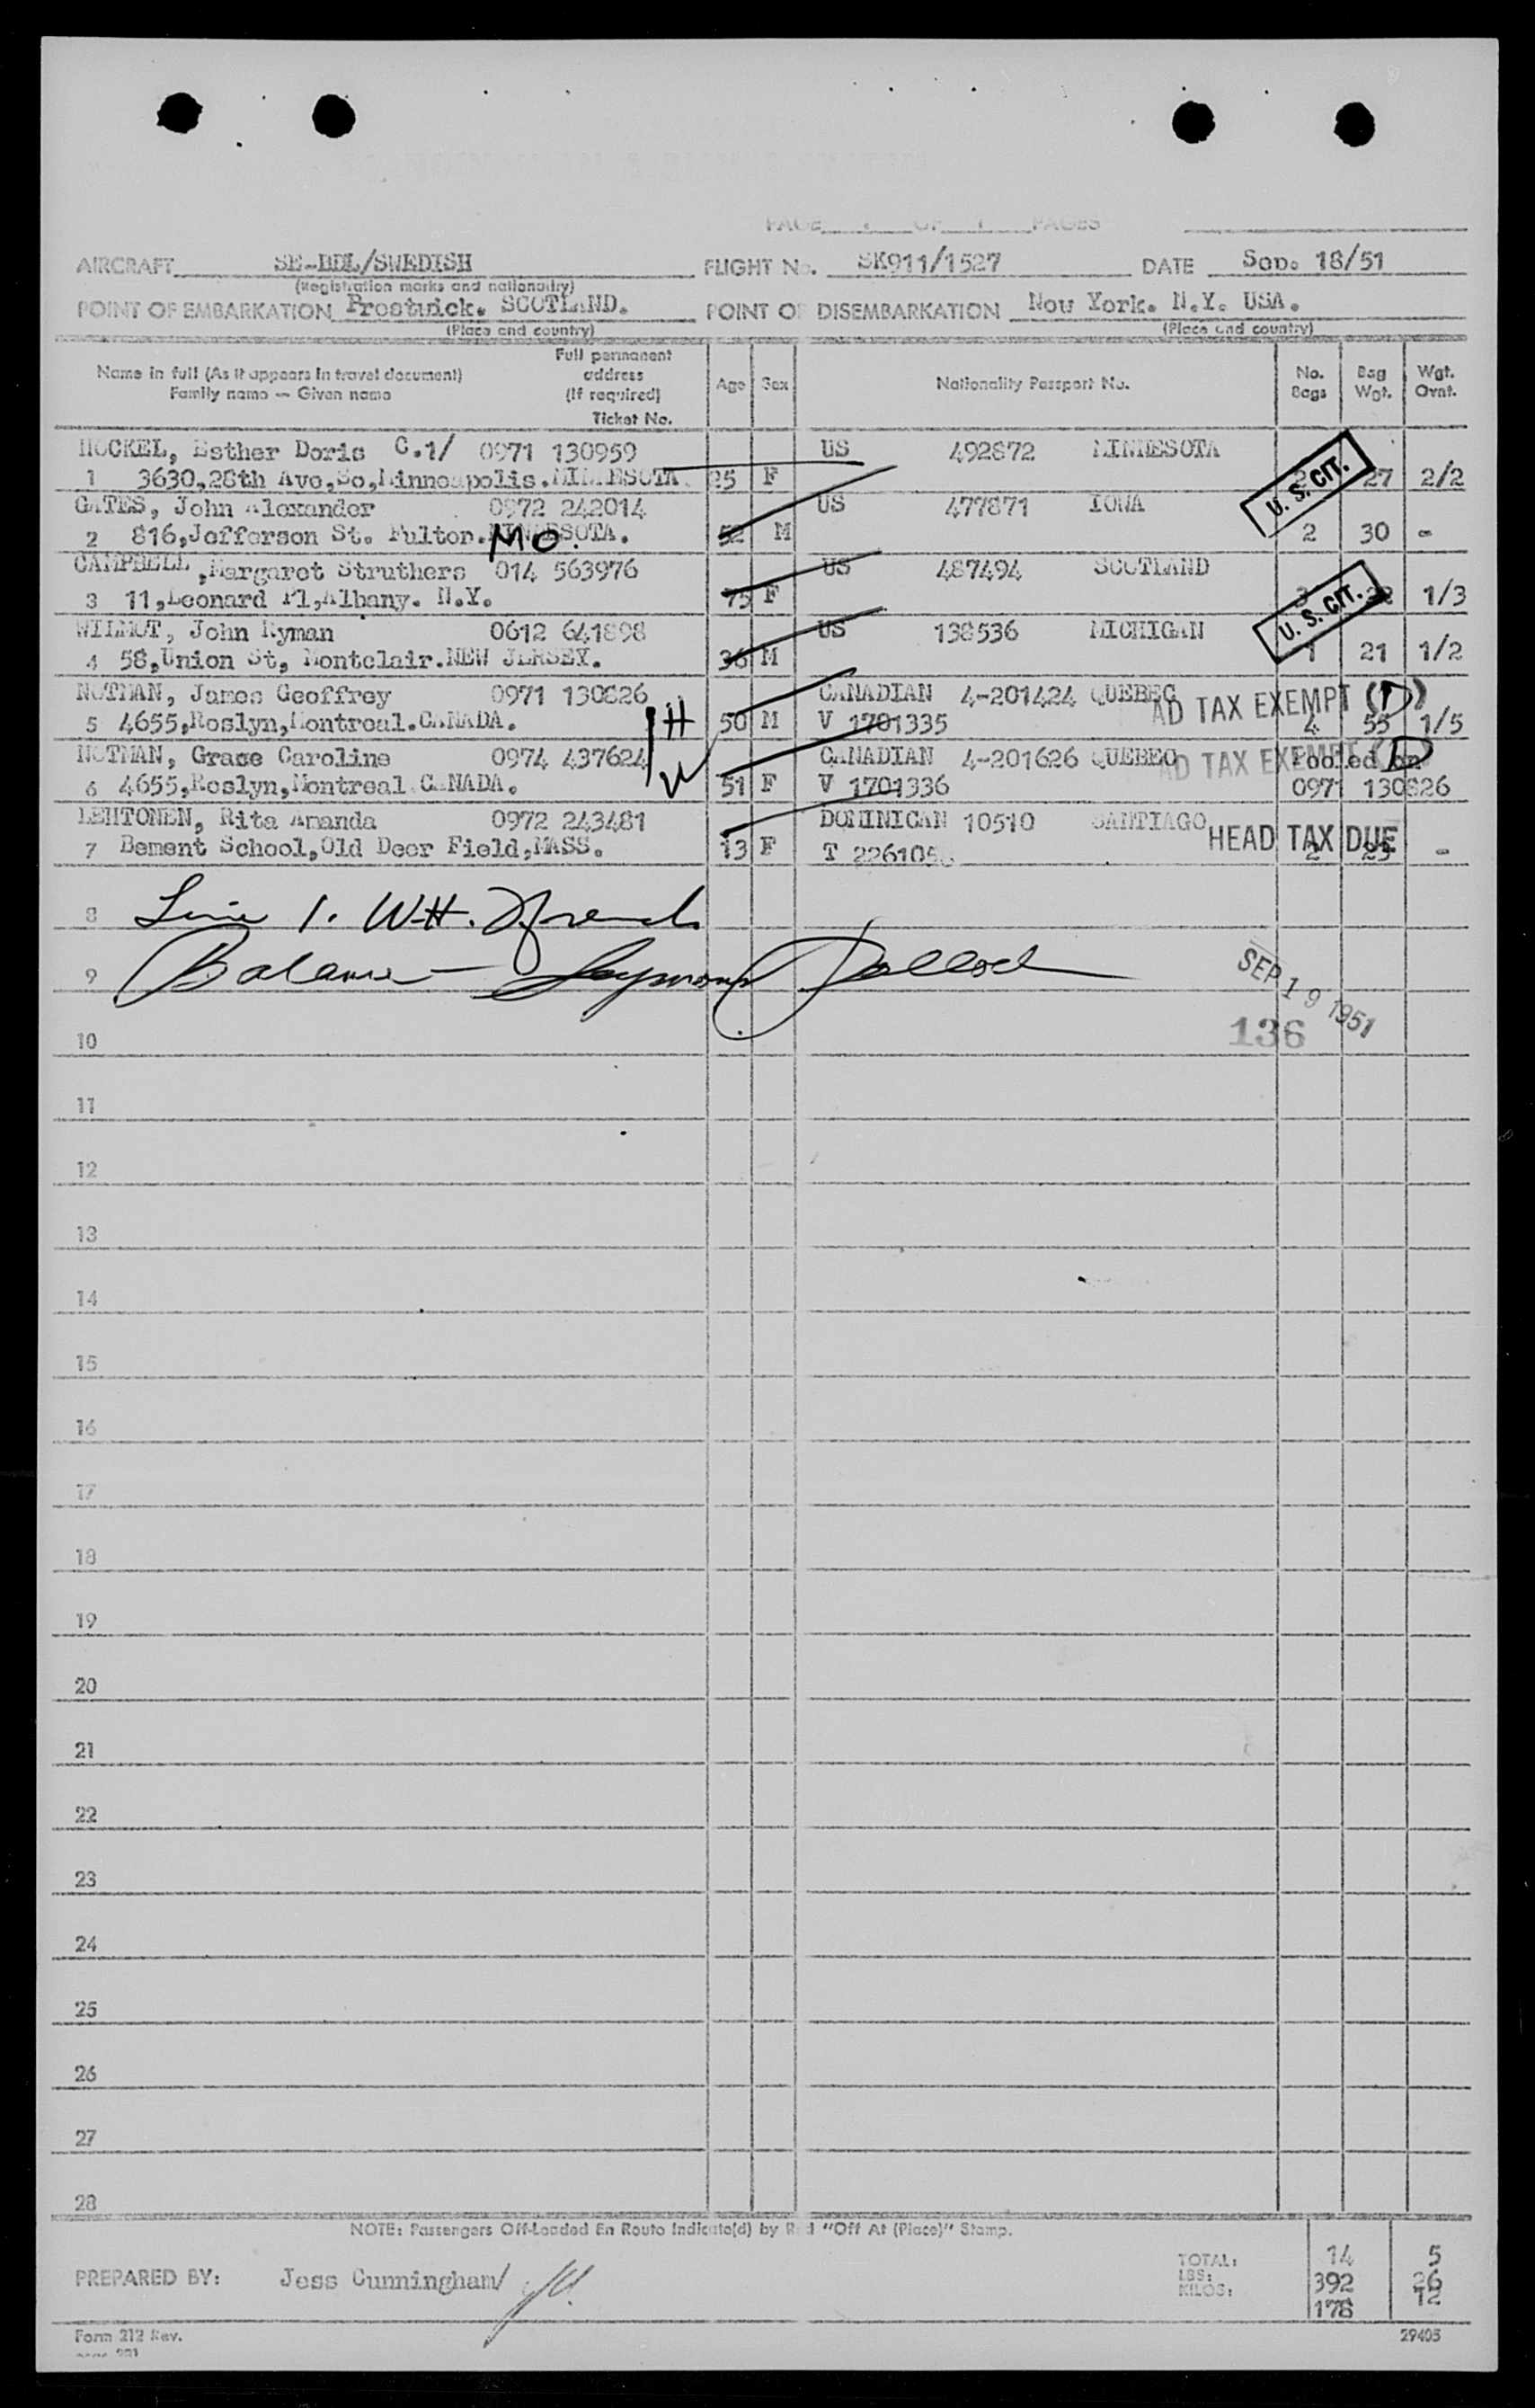 PAGE OF 1 PAGES
AIRCRAFT SE-BDL/SWEDISH FLIGHT No. SK911/1527 DATE Sep. 18/51
(Registration marks and nationality)
POINT OF EMBARKATION Prestwick. SCOTLAND. POINT OF DISEMBARKATION New York. N.Y. USA.
(Place and country) (Place and country)
Name in full (As it appears in travel document) Family name — Given name Full permanent address (If required) Ticket No. Age Sex Nationality Passport No. No. Bags Bag Wgt. Wgt. Ovnt.
HOCKEL, Esther Doris C.1/ 0971 130959 US 492872 MINNESOTA
1 3630,28th Ave,So,Minneapolis.MINNESOTA. 25 F U.S. CIT. 27 2/2
GATES, John Alexander 0972 242014 US 477871 IOWA
2 816,Jefferson St. Fulton.MINNESOTA. MO. 52 M 2 30 -
CAMPBELL ,Margaret Struthers 014 563976 US 487494 SCOTLAND
3 11,Leonard Pl,Albany. N.Y. 75 F 3 U.S. CIT. 1/3
WILMOT, John Ryman 0612 641898 US 138536 MICHIGAN
4 58,Union St, Montclair.NEW JERSEY. 36 M 1 21 1/2
NOTMAN, James Geoffrey 0971 130826 CANADIAN 4-201424 QUEBEC AD TAX EXEMPT (D)
5 4655,Roslyn,Montreal.CANADA. H 50 M V 1701335 4 55 1/5
NOTMAN, Grace Caroline 0974 437624 CANADIAN 4-201626 QUEBEC AD TAX EXEMPT D Pooled on
6 4655,Roslyn,Montreal CANADA. W 51 F V 1701336 0971 130826
LEHTONEN, Rita Amanda 0972 243481 DOMINICAN 10510 SANTIAGO HEAD TAX DUE
7 Bement School,Old Deer Field,MASS. 13 F T 226105 2 23 -
8 Line 1. W.H. French
9 Balance - Seymour Pollock
SEP 19 1951
136
10
11
12
13
14
15
16
17
18
19
20
21
22
23
24
25
26
27
28
NOTE: Passengers Off-Loaded En Route Indicate(d) by Red "Off At (Place)" Stamp.
TOTAL: 14 5
PREPARED BY: Jess Cunningham/
LBS: 392 26
KILOS: 178 12
Form 212 Rev. 29405